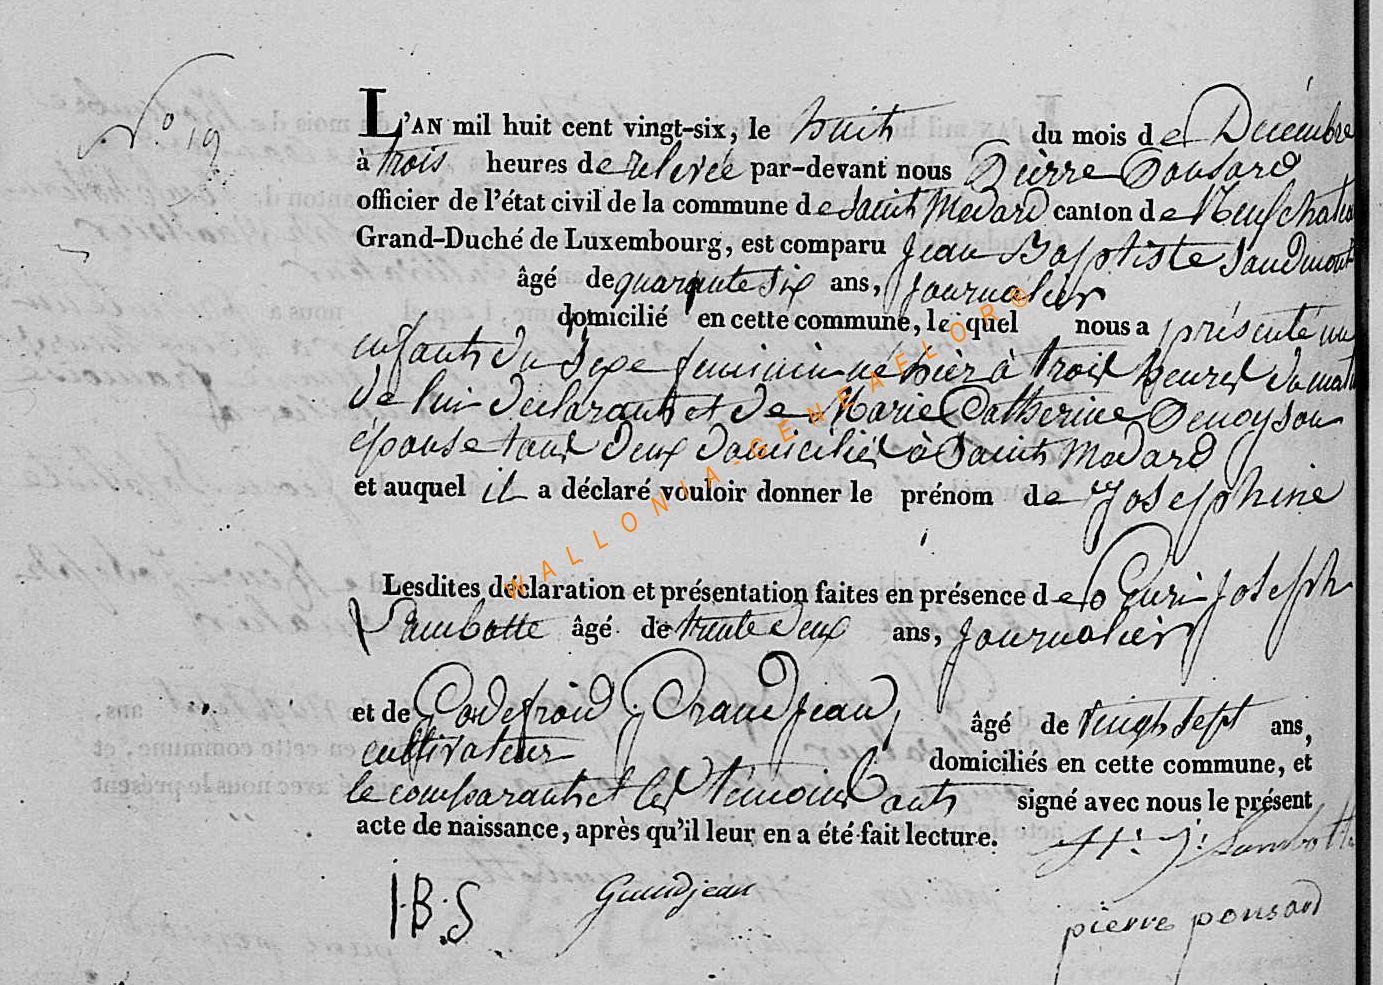 N.° 19
L'AN mil huit cent vingt-six, le huit du mois de Décembre
à trois heures de relevée par-devant nous Pierre Ponsard
officier de l'état civil de la commune de Saint Médard canton de Neufchateau
Grand-Duché de Luxembourg, est comparu Jean Baptiste Saudmont
âgé de quarante six ans, journalier
domicilié en cette commune, le quel nous a présenté un
enfant du sexe feminin né hier à trois heures du matin
de lui declarant et de Marie Catherine Denoy son
épouse tous deux domiciliés à Saint Médard
et auquel il a déclaré vouloir donner le prénom de Josephine
Lesdites déclaration et présentation faites en présence de Henri Joseph
Lambotte âgé de trente deux ans, journalier
et de Godefroid Grandjean, âgé de vingt sept ans,
cultivateur domiciliés en cette commune, et
le comparant et les témoins ont signé avec nous le présent
acte de naissance, après qu'il leur en a été fait lecture.
H. J. Lambotte
J.B.S Grandjean
pierre ponsard
WALLONIA-GENEAFLOR®